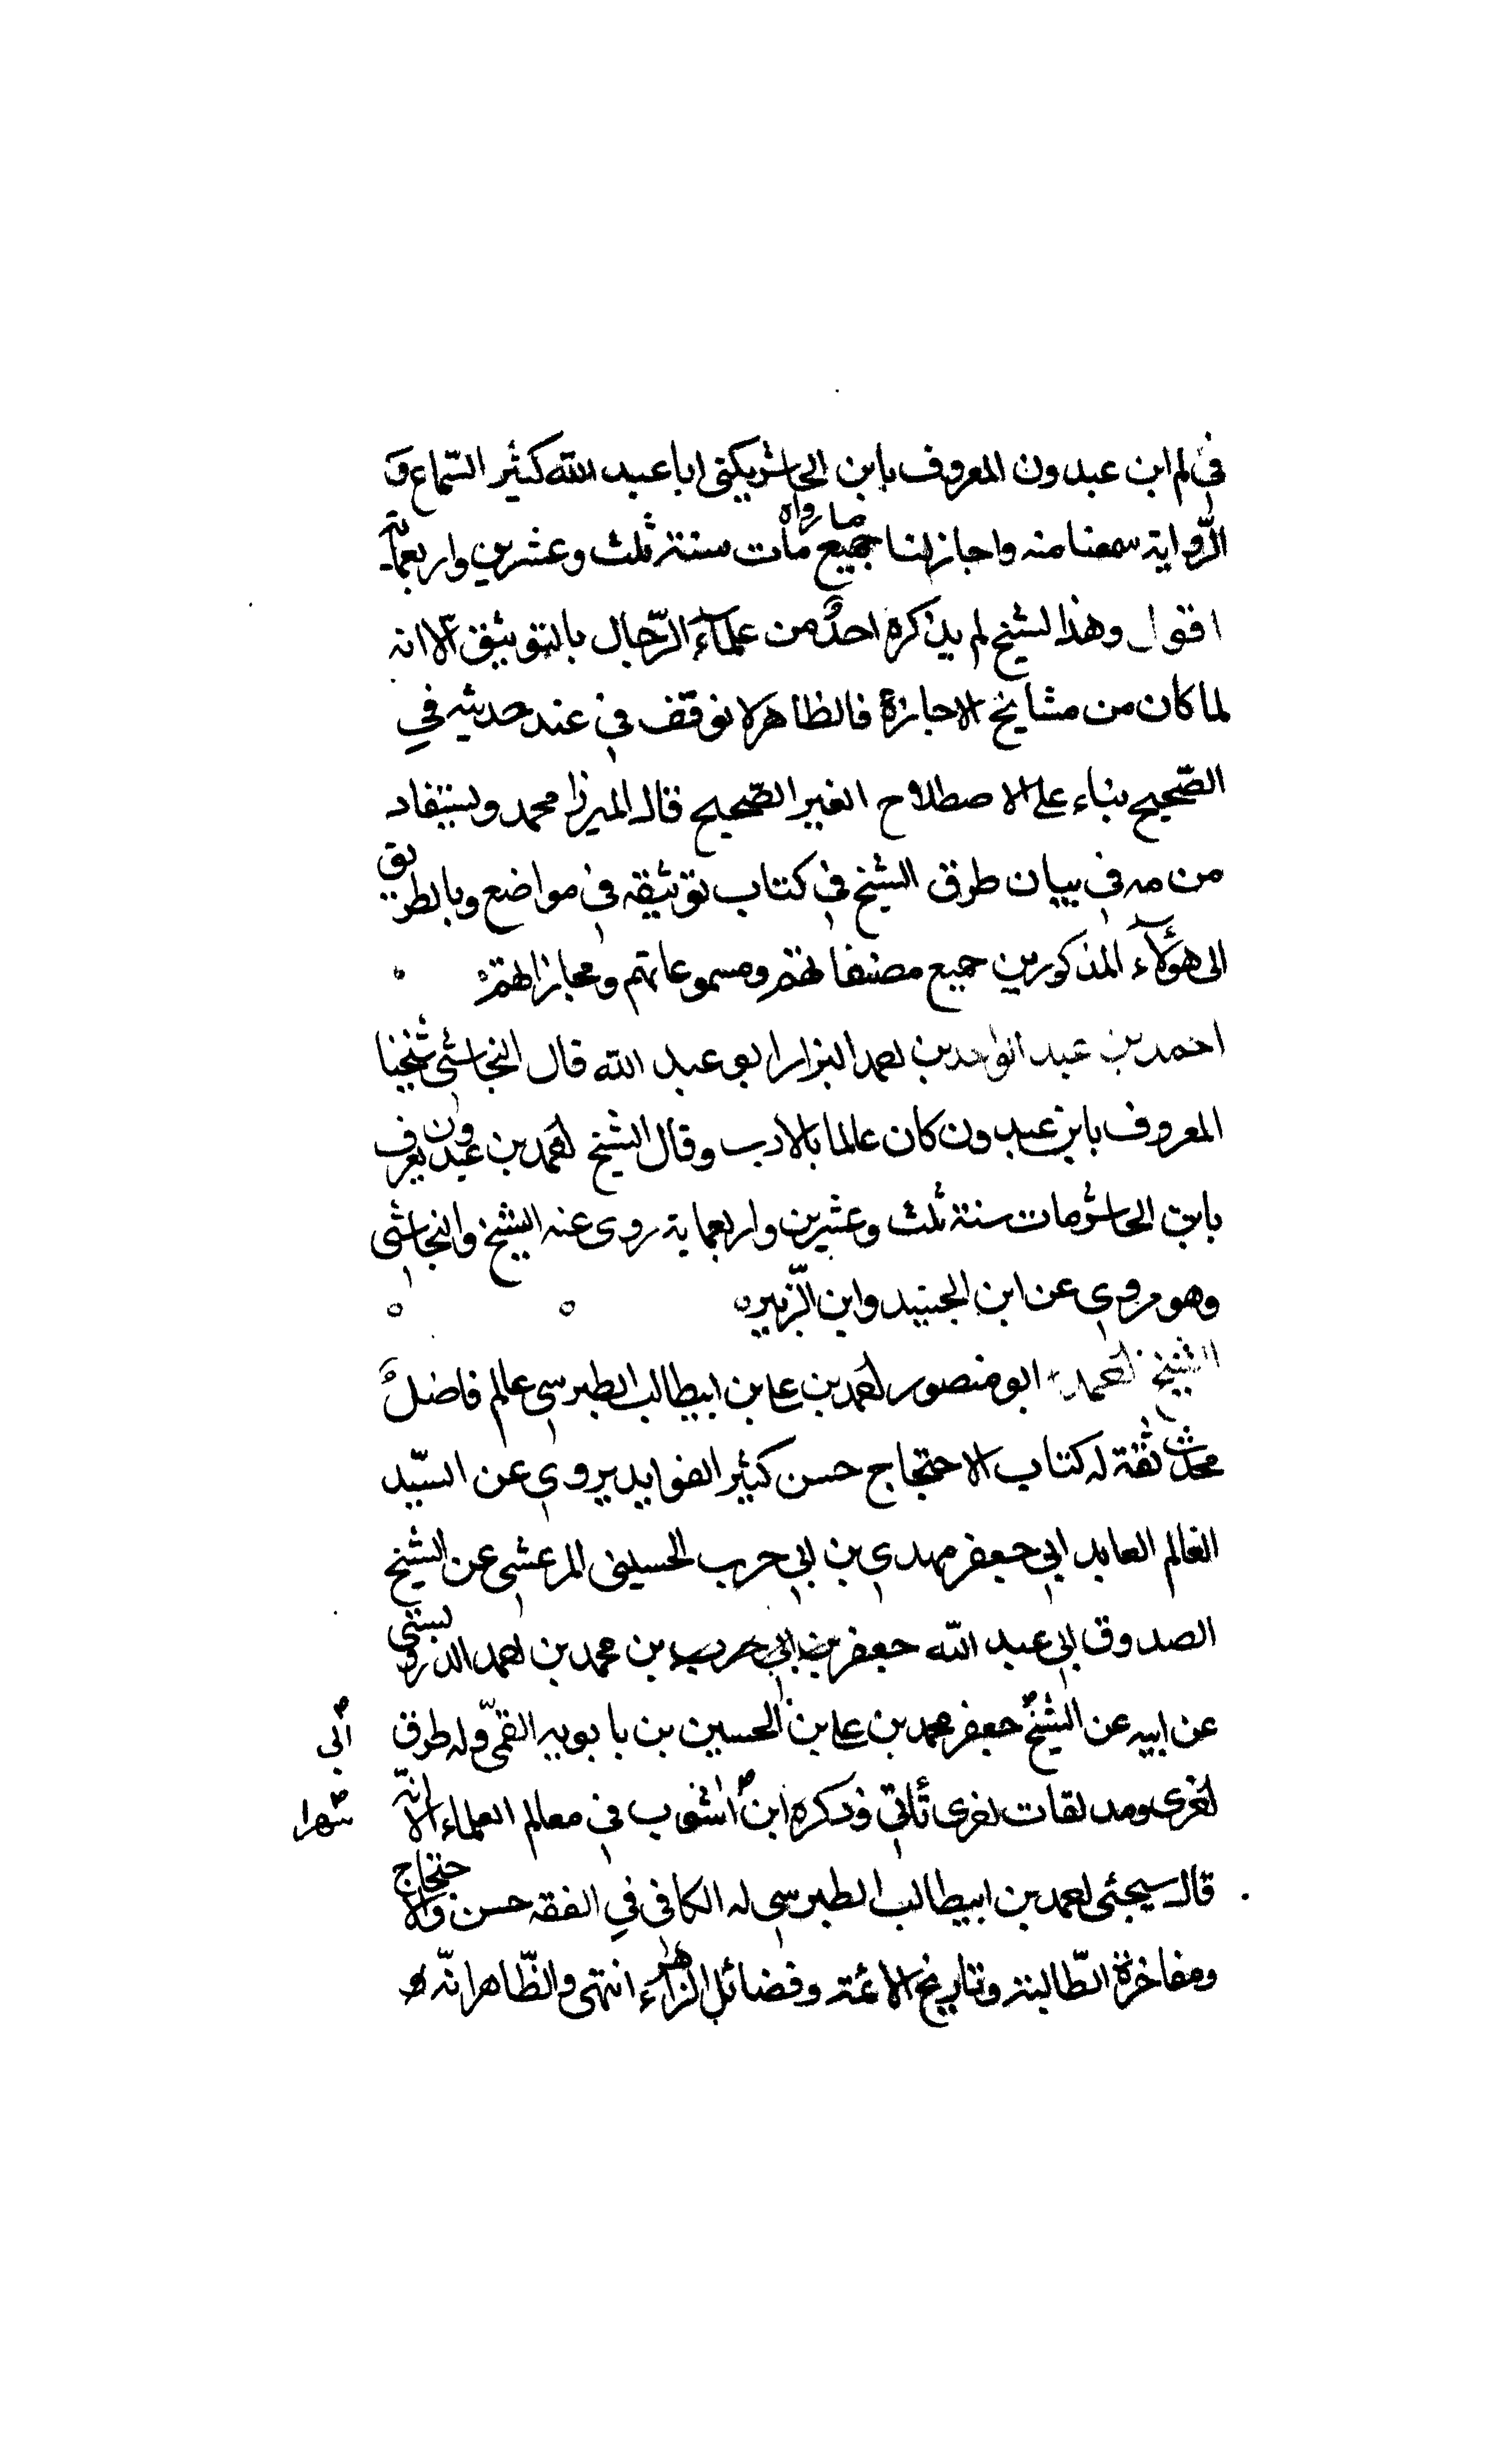 في لم ابن عبدون المعروف بابن الحاشر يكنى ابا عبد الله كثير السّماع و
الرّواية سمعنا منه واجاز لنا جميع ما رواه مات سنة ثلث وعشرين واربعماية
اقول وهذا لشيخ لم يذكره احدٌ من علماء الرّجال بالتوثيق الّا انه
لما كان من مشايخ الاجازة فالظاهر لا توقف في عند حديثه في
الصّحيح بناء على الاصطلاح الغير الصّحيح قال الميرزا محمد ويستفاد
من مه في بيان طرق الشيخ في كتاب توثيقه في مواضع وبالطريق
الى هؤلآء المذكورين جميع مصنفاتهم ومسموعاتهم ومجازاتهم
احمد بن عبد الواحد بن احمد البزاز ابو عبد الله قال النجاشي شيخنا
المعروف بابن عبدون كان عالما بالادب وقال الشيخ احمد بن عبدون يعرف
بابن الحاشر مات سنة ثلث وعشرين واربعماية روى عنه الشيخ والنجاشي
وهو يروي عن ابن الجنيد وابن الزّبير
الشيخ احمد ابو منصور احمد بن علي بن ابيطالب الطبرسي عالم فاضلٌ
محدث ثقة له كتاب الاحتجاج حسن كثير الفوايد يروي عن السيّد
العالم العابد ابي جعفر مهدي بن ابي حرب الحسيني المرعشي عن الشيخ
الصدوق ابي عبد الله جعفر بن ابي حرب بن محمد بن احمد الدوريستي
عن ابيه عن الشيخ جعفر محمد بن علي بن الحسين بن بابويه القمّي وله طرق
أبي
اخرى ومؤلفات اخرى تأتي وذكره ابن اشوب في معالم العلماء الا انّه
شهرا
قال سيجئي احمد بن ابيطالب الطبرسي له الكافي في الفقه حسن والاحتجاج
ومفاخرة الطّالبية وتاريخ الائمة وفضائل الزهراء انتهى والظّاهر انّه هو